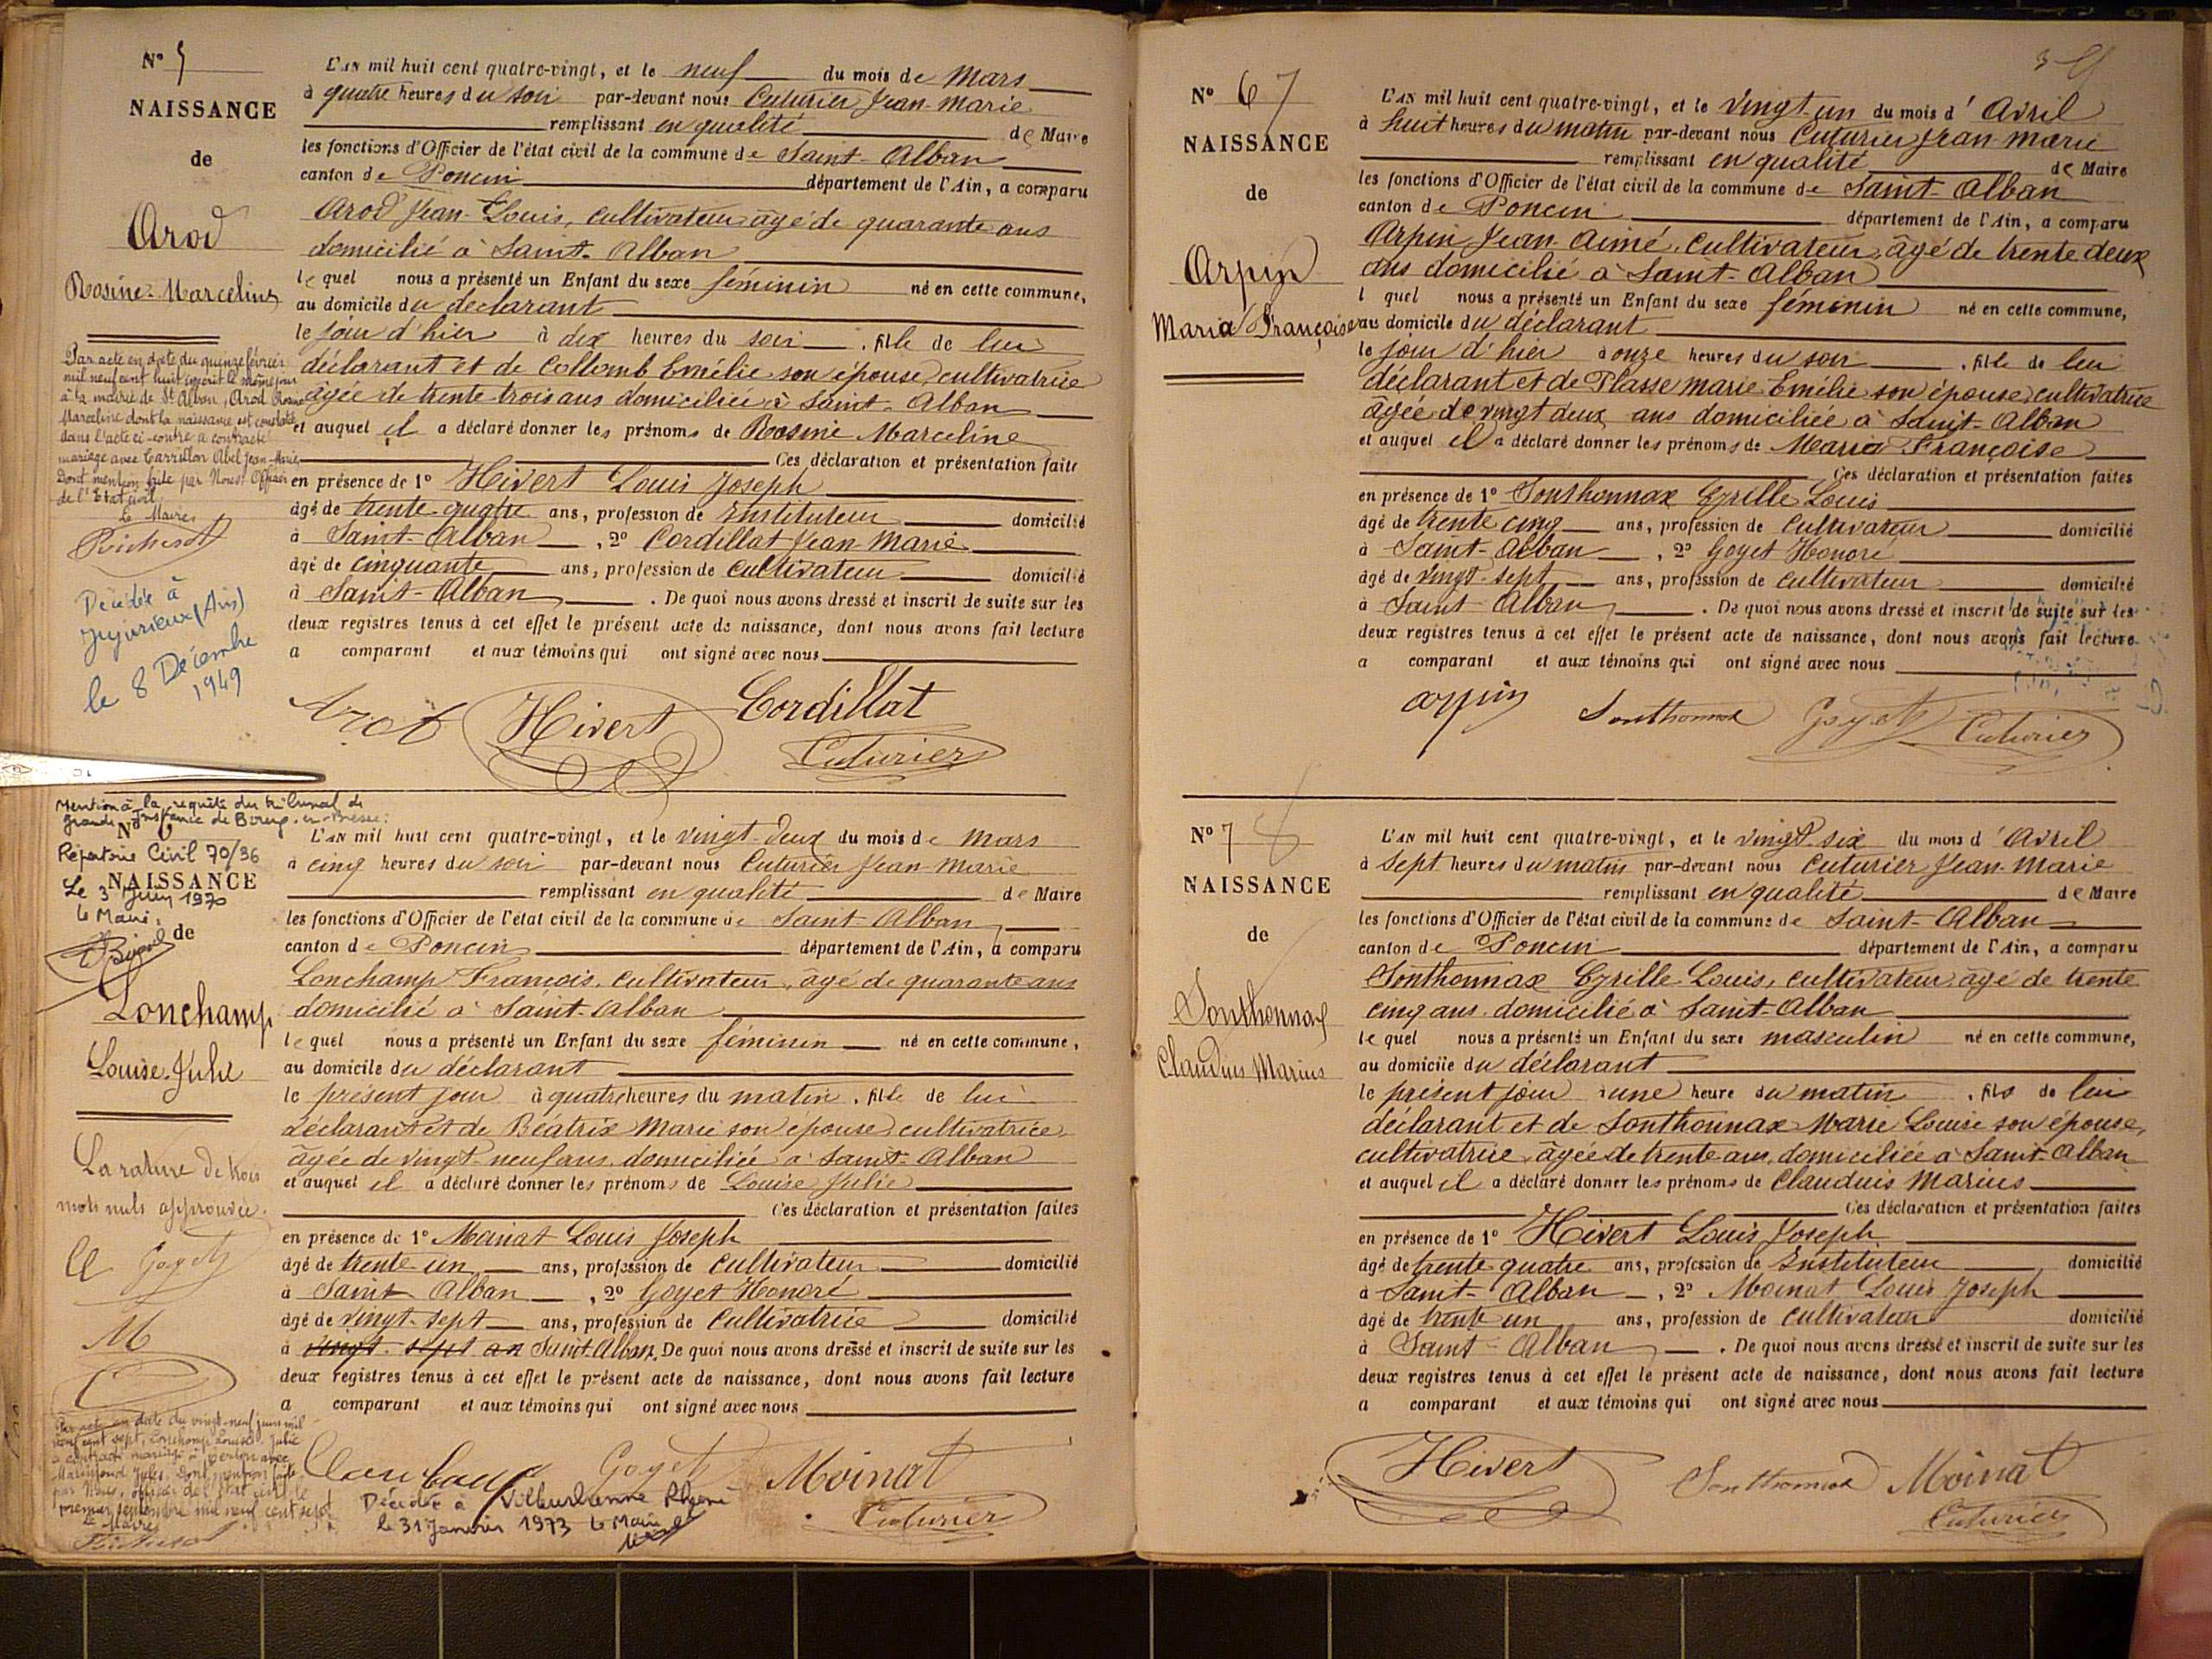 N° 5
NAISSANCE
de
Arod
Rosine-Marceline
Par acte en date du quinze février
mil neuf cent huit inscrit le même jour
à la mairie de St Alban, Arod Rosine
Marceline dont la naissance est constatée
dans l'acte ci-contre a contracté
mariage avec Carrillon Abel Jean-Marie
Dont mention faite par Nous Officier
de l'Etat civil
Le Maire
Décédée à
Jujurieux (Ain)
le 8 Décembre
1949
L'AN mil huit cent quatre-vingt, et le neuf du mois de Mars
à quatre heures du soir par-devant nous Cuturier Jean-Marie
remplissant en qualité de Maire
les fonctions d'Officier de l'état civil de la commune de Saint-Alban
canton de Poncin département de l'Ain, a comparu
Arod Jean-Louis, cultivateur âgé de quarante ans
domicilié à Saint-Alban
lequel nous a présenté un Enfant du sexe féminin né en cette commune,
au domicile du déclarant
le jour d'hier à dix heures du soir, fille de lui
déclarant et de Collomb Emélie son épouse, cultivatrice
âgée de trente trois ans domiciliée à Saint-Alban
et auquel il a déclaré donner les prénoms de Rosine Marceline
Ces déclaration et présentation faites
en présence de 1° Hivert Louis Joseph
âgé de trente-quatre ans, profession de Instituteur domicilié
à Saint-Alban, 2° Cordillat Jean Marie
âgé de cinquante ans, profession de cultivateur domicilié
à Saint-Alban. De quoi nous avons dressé et inscrit de suite sur les
deux registres tenus à cet effet le présent acte de naissance, dont nous avons fait lecture
a comparant et aux témoins qui ont signé avec nous
Arod Hivert Cordillat
Cuturier
Mention à la requête du tribunal de
grande Instance de Bourg-en-Bresse:
N° 6
Répertoire Civil 70/36
NAISSANCE
Le 3 Juin 1970
le Maire,
de
Lonchamp
Louise-Julie
La rature de trois
mots nuls approuvée.
Cl Goyet
M
Par acte en date du vingt-neuf juin mil
neuf cent sept, Lonchamp Louise Julie
a contracté mariage à avec
Jules, Dont mention faite
par Nous, officier de l'Etat civil, le
premier septembre mil neuf cent sept
Le Maire
L'AN mil huit cent quatre-vingt, et le vingt-deux du mois de Mars
à cinq heures du soir par-devant nous Cuturier Jean-Marie
remplissant en qualité de Maire
les fonctions d'Officier de l'état civil de la commune de Saint-Alban
canton de Poncin département de l'Ain, a comparu
Lonchamp François, cultivateur, âgé de quarante ans
domicilié à Saint-Alban
lequel nous a présenté un Enfant du sexe féminin né en cette commune,
au domicile du déclarant
le présent jour à quatre heures du matin, fille de lui
déclarant et de Béatrix Marie son épouse, cultivatrice
âgée de vingt-neuf ans, domiciliée à Saint-Alban
et auquel il a déclaré donner les prénoms de Louise Julie
Ces déclaration et présentation faites
en présence de 1° Moinat Louis Joseph
âgé de trente un ans, profession de cultivateur domicilié
à Saint Alban, 2° Goyet Honoré
âgé de vingt-sept ans, profession de Cultivatrice domicilié
à vingt-sept an Saint Alban. De quoi nous avons dressé et inscrit de suite sur les
deux registres tenus à cet effet le présent acte de naissance, dont nous avons fait lecture
a comparant et aux témoins qui ont signé avec nous
Goyet Moinat
Décédée à Villeurbanne Rhône
le 31 Janvier 1973 le Maire
Cuturier
N° 6 7
NAISSANCE
de
Arpin
Maria Françoise
L'AN mil huit cent quatre-vingt, et le vingt-un du mois d'Avril
à huit heures du matin par-devant nous Cuturier Jean-Marie
remplissant en qualité de Maire
les fonctions d'Officier de l'état civil de la commune de Saint-Alban
canton de Poncin département de l'Ain, a comparu
Arpin Jean-Aimé, cultivateur, âgé de trente deux
ans domicilié à Saint-Alban
l quel nous a présenté un Enfant du sexe féminin né en cette commune,
au domicile du déclarant
le jour d'hier à onze heures du soir, fille de lui
déclarant et de Plasse Marie Emélie son épouse, cultivatrice
âgée de vingt deux ans domiciliée à Saint-Alban
et auquel il a déclaré donner les prénoms de Maria Françoise
Ces déclaration et présentation faites
en présence de 1° Sonthonnax Cyrille Louis
âgé de trente cinq ans, profession de cultivateur domicilié
à Saint-Alban, 2° Goyet Honoré
âgé de vingt-sept ans, profession de cultivateur domicilié
à Saint Alban. De quoi nous avons dressé et inscrit de suite sur les
deux registres tenus à cet effet le présent acte de naissance, dont nous avons fait lecture
a comparant et aux témoins qui ont signé avec nous
arpin Sonthonnax Goyet Cuturier
N° 7 8
NAISSANCE
de
Sonthonnax
Claudius Marius
L'AN mil huit cent quatre-vingt, et le vingt-six du mois d'Avril
à sept heures du matin par-devant nous Cuturier Jean-Marie
remplissant en qualité de Maire
les fonctions d'Officier de l'état civil de la commune de Saint-Alban
canton de Poncin département de l'Ain, a comparu
Sonthonnax Cyrille Louis, cultivateur âgé de trente
cinq ans, domicilié à Saint-Alban
lequel nous a présenté un Enfant du sexe masculin né en cette commune,
au domicile du déclarant
le présent jour à une heure du matin, fils de lui
déclarant et de Sonthonnax Marie Louise son épouse,
cultivatrice, âgée de trente ans, domiciliée à Saint-Alban
et auquel il a déclaré donner les prénoms de Claudius Marius
Ces déclaration et présentation faites
en présence de 1° Hivert Louis Joseph
âgé de trente quatre ans, profession de Instituteur domicilié
à Saint-Alban, 2° Moinat Louis Joseph
âgé de trente un ans, profession de cultivateur domicilié
à Saint-Alban. De quoi nous avons dressé et inscrit de suite sur les
deux registres tenus à cet effet le présent acte de naissance, dont nous avons fait lecture
a comparant et aux témoins qui ont signé avec nous
Hivert Sonthonnax Moinat
Cuturier